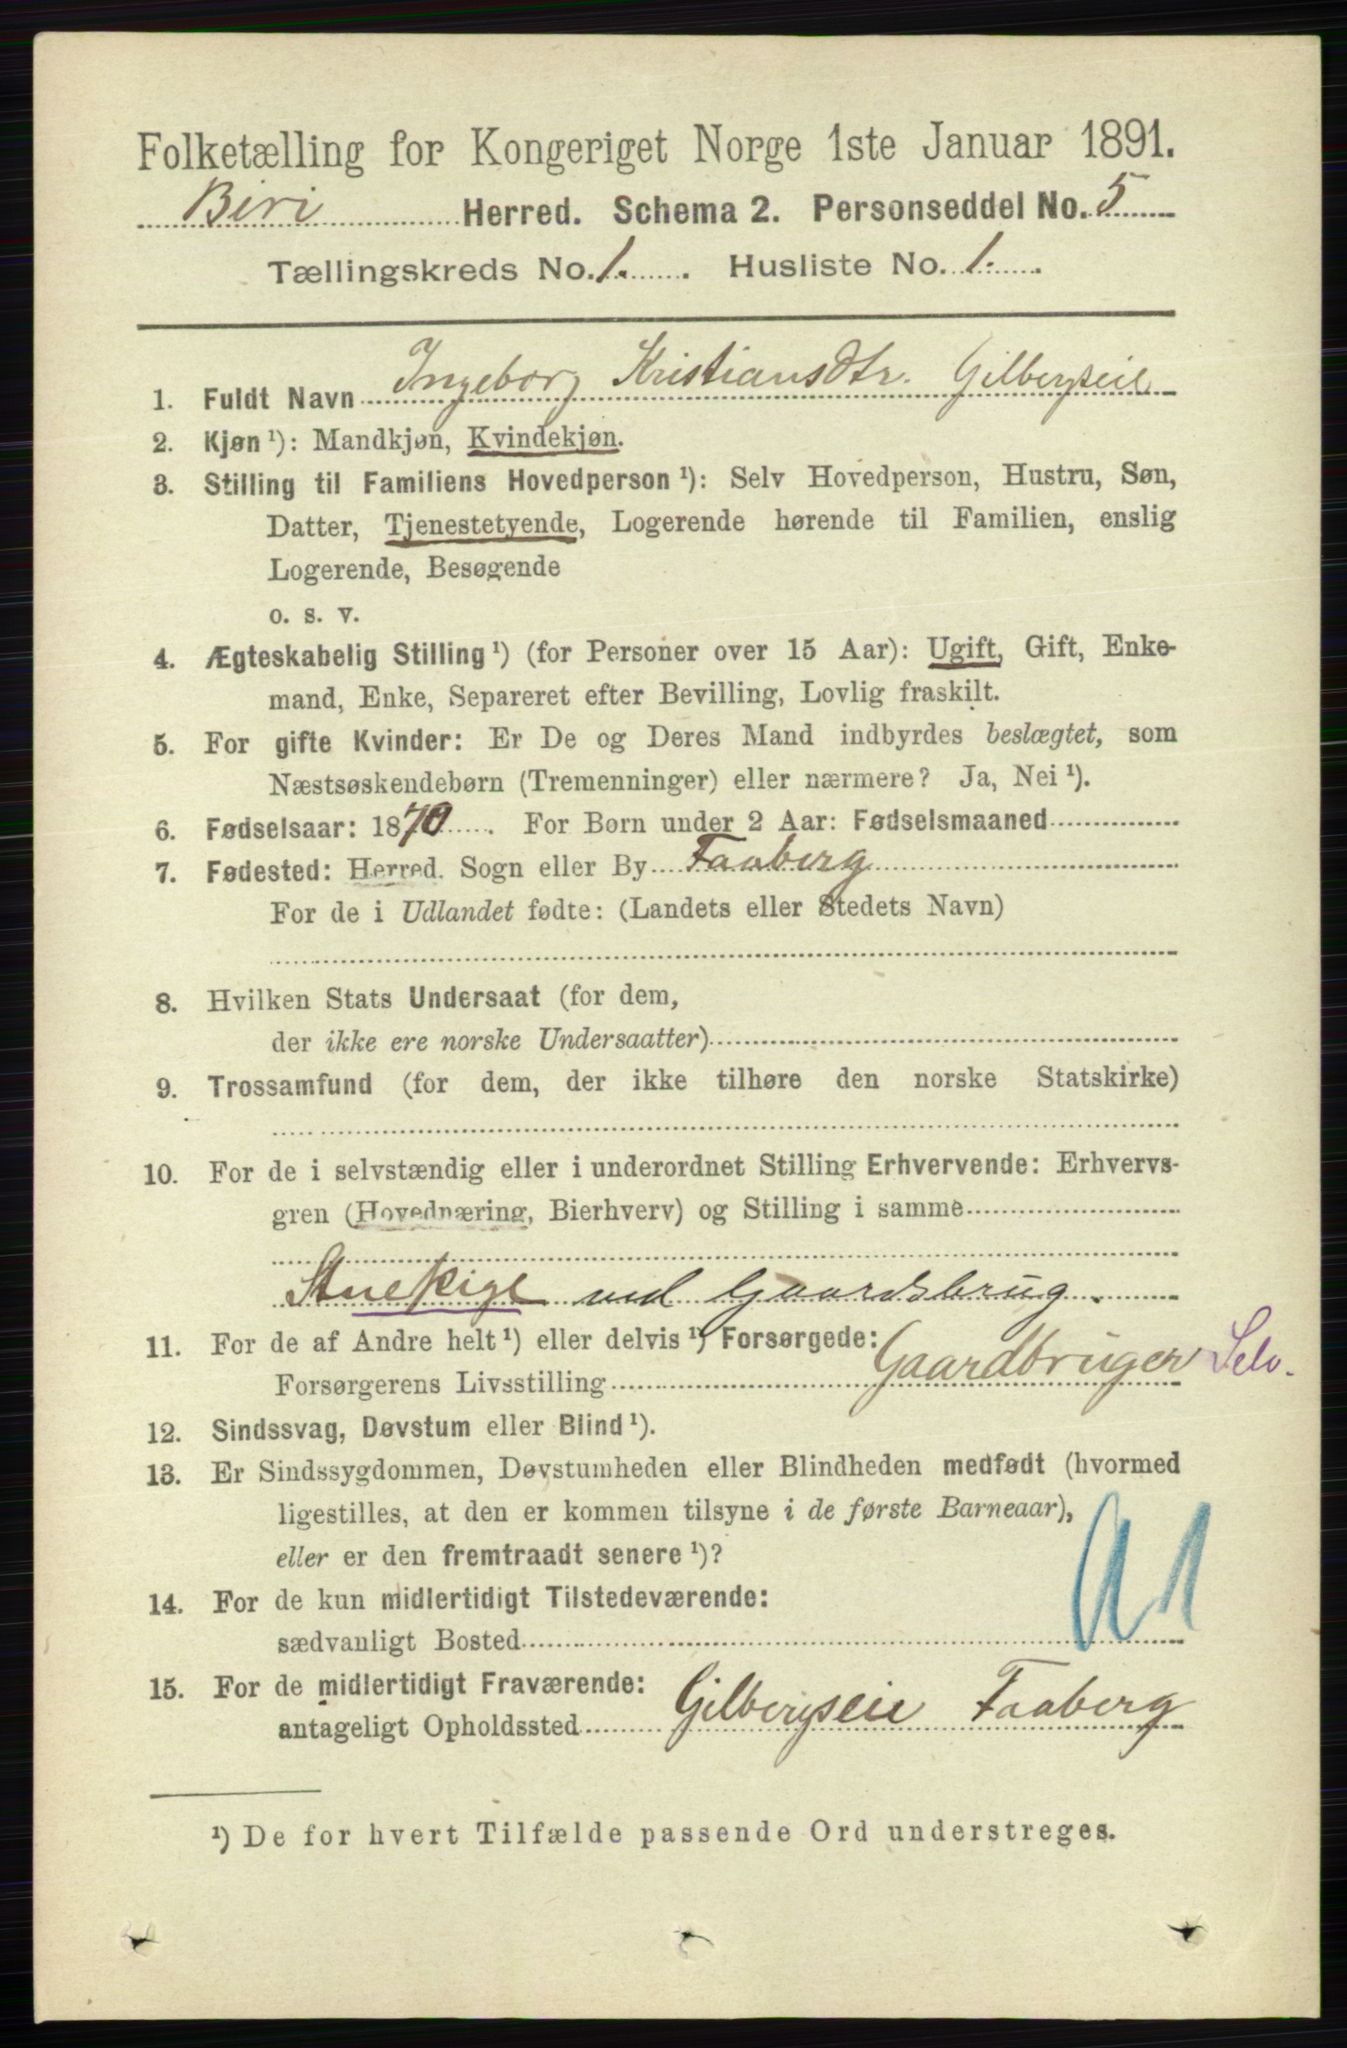 Folketælling for Kongeriget Norge 1ste Januar 1891.
Biri Herred. Schema 2. Personseddel No. 5
Tællingskreds No. 1. Husliste No. 1.
1. Fuldt Navn Ingeborg Kristiansdtr. Gilbergseie
2. Kjøn ¹): Mandkjøn, Kvindekjøn.
3. Stilling til Familiens Hovedperson ¹): Selv Hovedperson, Hustru, Søn,
Datter, Tjenestetyende, Logerende hørende til Familien, enslig
Logerende, Besøgende
o. s. v.
4. Ægteskabelig Stilling ¹) (for Personer over 15 Aar): Ugift, Gift, Enke-
mand, Enke, Separeret efter Bevilling, Lovlig fraskilt.
5. For gifte Kvinder: Er De og Deres Mand indbyrdes beslægtet, som
Næstsøskendebørn (Tremenninger) eller nærmere? Ja, Nei ¹).
6. Fødselsaar: 1870. For Børn under 2 Aar: Fødselsmaaned
7. Fødested: Herred. Sogn eller By Faaberg
For de i Udlandet fødte: (Landets eller Stedets Navn)
8. Hvilken Stats Undersaat (for dem,
der ikke ere norske Undersaatter)
9. Trossamfund (for dem, der ikke tilhøre den norske Statskirke)
10. For de i selvstændig eller i underordnet Stilling Erhvervende: Erhvervs-
gren (Hovednæring, Bierhverv) og Stilling i samme
Stuepige ved Gaardsbrug.
11. For de af Andre helt ¹) eller delvis ¹) Forsørgede:
Forsørgerens Livsstilling Gaardbruger Selv.
12. Sindssvag, Døvstum eller Blind ¹).
13. Er Sindssygdommen, Døvstumheden eller Blindheden medfødt (hvormed
ligestilles, at den er kommen tilsyne i de første Barneaar),
eller er den fremtraadt senere ¹)?
14. For de kun midlertidigt Tilstedeværende:
sædvanligt Bosted
15. For de midlertidigt Fraværende:
antageligt Opholdssted Gilbergseie Faaberg
¹) De for hvert Tilfælde passende Ord understreges.